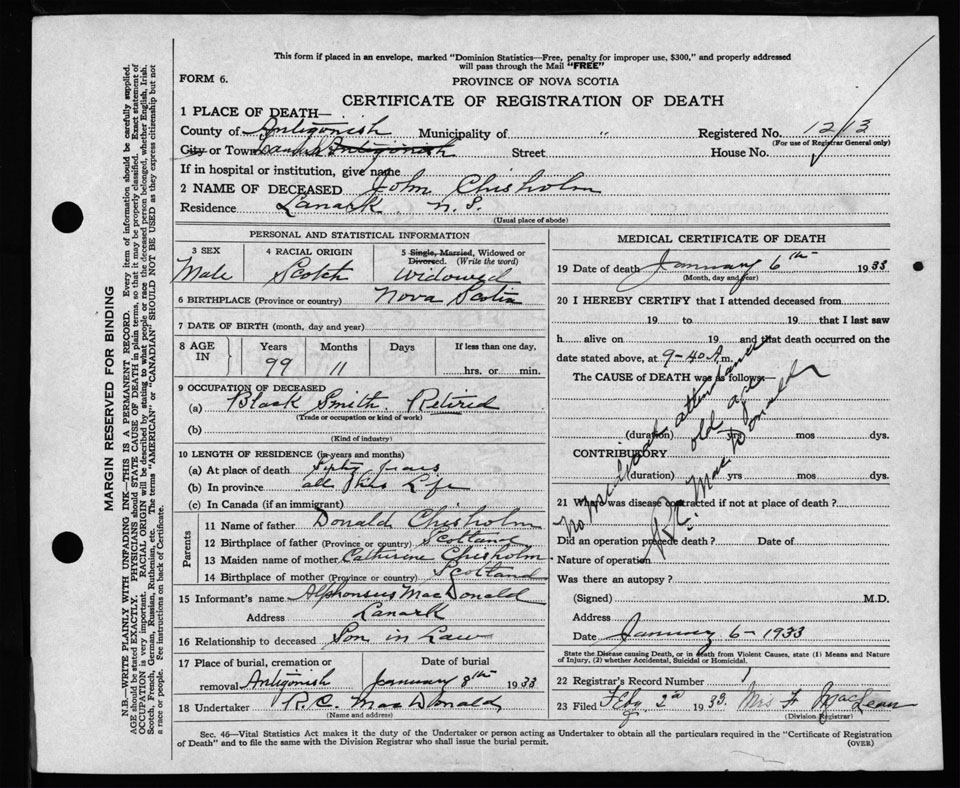 This form if placed in an envelope, marked "Dominion Statistics—Free, penalty for improper use, $300," and properly addressed
will pass through the Mail "FREE"
FORM 6.
PROVINCE OF NOVA SCOTIA
CERTIFICATE OF REGISTRATION OF DEATH
1 PLACE OF DEATH—
County of Antigonish Municipality of " Registered No. 1213
(For use of Registrar General only)
City or Town Lanark Antigonish Street House No.
If in hospital or institution, give name
2 NAME OF DECEASED John Chisholm
Residence Lanark N.S.
(Usual place of abode)
PERSONAL AND STATISTICAL INFORMATION
3 SEX 4 RACIAL ORIGIN 5 Single, Married, Widowed or
Divorced. (Write the word)
Male Scotch Widowed
6 BIRTHPLACE (Province or country) Nova Scotia
7 DATE OF BIRTH (month, day and year)
8 AGE IN Years Months Days If less than one day.
99 11 hrs. or min.
9 OCCUPATION OF DECEASED
(a) Black Smith. Retired
(Trade or occupation or kind of work)
(b)
(Kind of industry)
10 LENGTH OF RESIDENCE (in years and months)
(a) At place of death Fifty years
(b) In province all His Life
(c) In Canada (if an immigrant)
Parents
11 Name of father Donald Chisholm
12 Birthplace of father (Province or country) Scotland
13 Maiden name of mother Catherine Chisholm
14 Birthplace of mother (Province or country) Scotland
15 Informant's name Alphonsus MacDonald
Address Lanark
16 Relationship to deceased Son in Law
17 Place of burial, cremation or Date of burial
removal Antigonish January 8th 1933
18 Undertaker R.C. MacDonald
(Name and address)
MEDICAL CERTIFICATE OF DEATH
19 Date of death January 6th 1933
(Month, day and year)
20 I HEREBY CERTIFY that I attended deceased from
19 to 19 that I last saw
h alive on 19 and that death occurred on the
date stated above, at 9-40 A.m.
The CAUSE of DEATH was as follows—
No Medical attendance
old age
R.C. MacDonald
(duration) yrs mos dys.
CONTRIBUTORY
(duration) yrs mos dys.
21 Where was disease contracted if not at place of death?
Did an operation precede death? Date of
Nature of operation
Was there an autopsy?
(Signed) M.D.
Address
Date January 6-1933
State the Disease causing Death, or in death from Violent Causes, state (1) Means and Nature
of Injury, (2) whether Accidental, Suicidal or Homicidal.
22 Registrar's Record Number 1
23 Filed Feby 2d 1933. Mrs F MacLean
(Division Registrar)
Sec. 46—Vital Statistics Act makes it the duty of the Undertaker or person acting as Undertaker to obtain all the particulars required in the "Certificate of Registration
of Death" and to file the same with the Division Registrar who shall issue the burial permit.
(OVER)
MARGIN RESERVED FOR BINDING
N.B.—WRITE PLAINLY WITH UNFADING INK—THIS IS A PERMANENT RECORD. Every item of information should be carefully supplied.
AGE should be stated EXACTLY. PHYSICIANS should STATE CAUSE OF DEATH in plain terms, so that it may be properly classified. Exact statement of
OCCUPATION is very important. RACIAL ORIGIN will be described by stating to what people or race the deceased person belonged, whether English, Irish,
Scotch, French, German, Russian, Ruthenian, etc. The terms "AMERICAN" or "CANADIAN" SHOULD NOT BE USED as they express citizenship but not
a race or people. See instructions on back of Certificate.